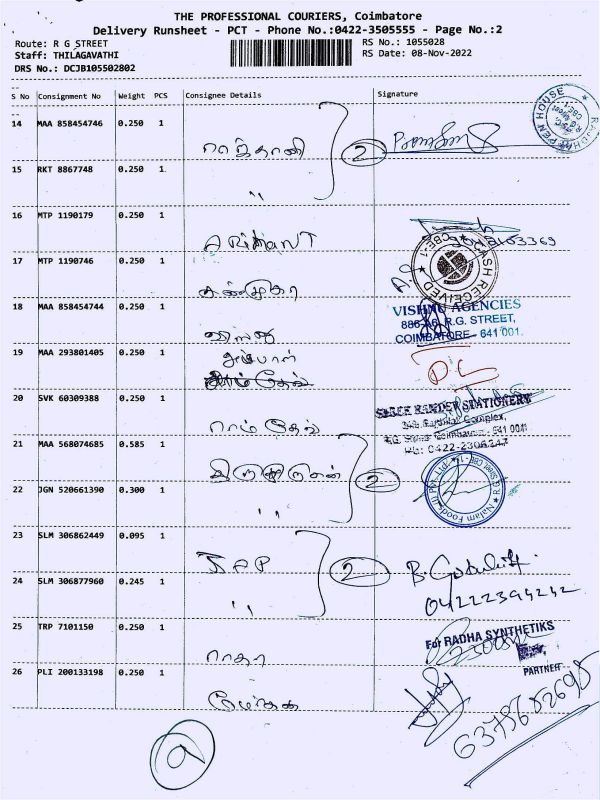 THE PROFESSIONAL COURIERS, Coimbatore
Delivery Runsheet - PCT - Phone No.:0422-3505555 - Page No.:2
Route: R G STREET
RS No.: 1055028
Staff: THILAGAVATHI
RS Date: 08-Nov-2022
DRS No.: DCJB105502802
S No Consignment No Weight PCS Consignee Details Signature
14 MAA 858454746 0.250 1
2
15 RKT 8867748 0.250 1
"
16 MTP 1190179 0.250 1
ARihanT
17 MTP 1190746 0.250 1
CASH RECEIVED
CBE-1
18 MAA 858454744 0.250 1
VISHNU AGENCIES
R.G. STREET,
COIMBATORE - 641 001.
19 MAA 293801405 0.250 1
20 SVK 60309388 0.250 1
ராம் தேவ்
SHREE RAMDEV STATIONERY
Complex,
R.G. Street Coimbatore - 641 001
Ph: 0422-2306247
21 MAA 568074685 0.585 1
2
22 JGN 520661390 0.300 1
"
23 SLM 306862449 0.095 1
2
24 SLM 306877960 0.245 1
"
04222394242
25 TRP 7101150 0.250 1
ராதா
For RADHA SYNTHETIKS
PARTNER
26 PLI 200133198 0.250 1
6378682698
9